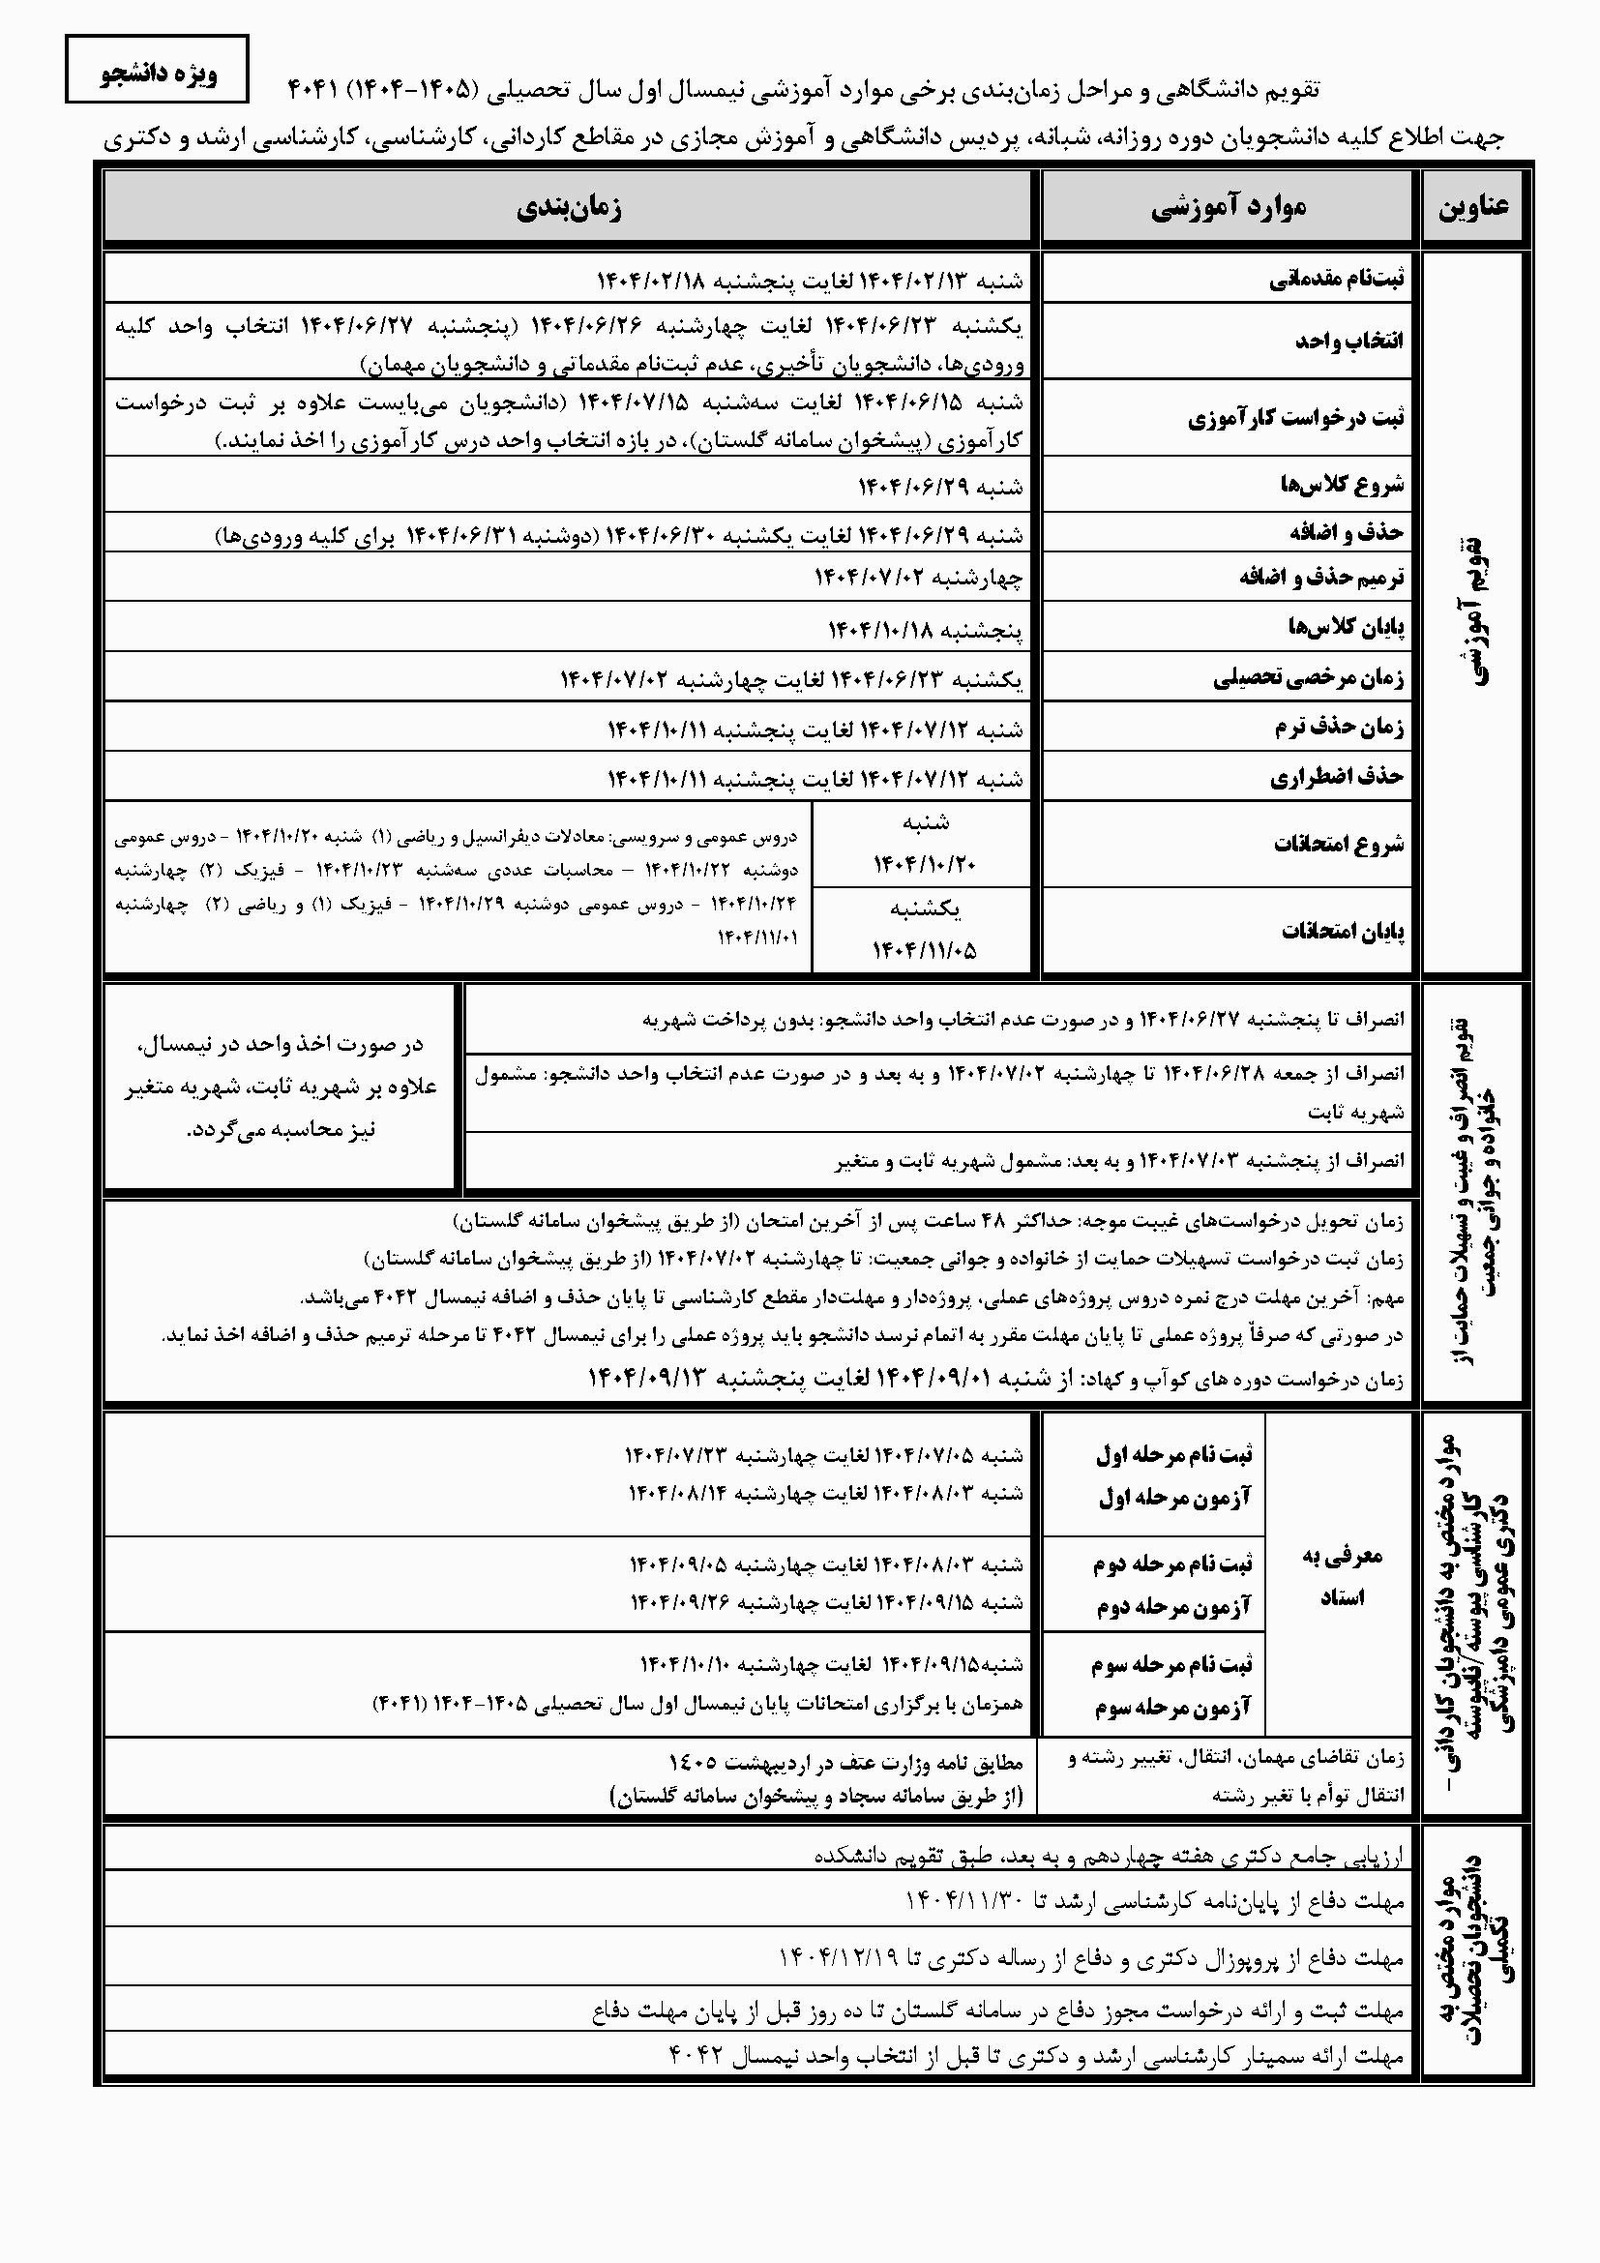 ویژه دانشجو
تقویم دانشگاهی و مراحل زمان‌بندی برخی موارد آموزشی نیمسال اول سال تحصیلی (۱۴۰۵-۱۴۰۴) ۴۰۴۱
جهت اطلاع کلیه دانشجویان دوره روزانه، شبانه، پردیس دانشگاهی و آموزش مجازی در مقاطع کاردانی، کارشناسی، کارشناسی ارشد و دکتری
عناوین
موارد آموزشی
زمان‌بندی
تقویم آموزشی
ثبت‌نام مقدماتی
شنبه ۱۴۰۴/۰۲/۱۳ لغایت پنجشنبه ۱۴۰۴/۰۲/۱۸
انتخاب واحد
یکشنبه ۱۴۰۴/۰۶/۲۳ لغایت چهارشنبه ۱۴۰۴/۰۶/۲۶ (پنجشنبه ۱۴۰۴/۰۶/۲۷ انتخاب واحد کلیه
ورودی‌ها، دانشجویان تأخیری، عدم ثبت‌نام مقدماتی و دانشجویان مهمان)
ثبت درخواست کارآموزی
شنبه ۱۴۰۴/۰۶/۱۵ لغایت سه‌شنبه ۱۴۰۴/۰۷/۱۵ (دانشجویان می‌بایست علاوه بر ثبت درخواست
کارآموزی (پیشخوان سامانه گلستان)، در بازه انتخاب واحد درس کارآموزی را اخذ نمایند.)
شروع کلاس‌ها
شنبه ۱۴۰۴/۰۶/۲۹
حذف و اضافه
شنبه ۱۴۰۴/۰۶/۲۹ لغایت یکشنبه ۱۴۰۴/۰۶/۳۰ (دوشنبه ۱۴۰۴/۰۶/۳۱ برای کلیه ورودی‌ها)
ترمیم حذف و اضافه
چهارشنبه ۱۴۰۴/۰۷/۰۲
پایان کلاس‌ها
پنجشنبه ۱۴۰۴/۱۰/۱۸
زمان مرخصی تحصیلی
یکشنبه ۱۴۰۴/۰۶/۲۳ لغایت چهارشنبه ۱۴۰۴/۰۷/۰۲
زمان حذف ترم
شنبه ۱۴۰۴/۰۷/۱۲ لغایت پنجشنبه ۱۴۰۴/۱۰/۱۱
حذف اضطراری
شنبه ۱۴۰۴/۰۷/۱۲ لغایت پنجشنبه ۱۴۰۴/۱۰/۱۱
شروع امتحانات
شنبه
۱۴۰۴/۱۰/۲۰
پایان امتحانات
یکشنبه
۱۴۰۴/۱۱/۰۵
دروس عمومی و سرویسی: معادلات دیفرانسیل و ریاضی (۱) شنبه ۱۴۰۴/۱۰/۲۰ - دروس عمومی
دوشنبه ۱۴۰۴/۱۰/۲۲ – محاسبات عددی سه‌شنبه ۱۴۰۴/۱۰/۲۳ - فیزیک (۲) چهارشنبه
۱۴۰۴/۱۰/۲۴ - دروس عمومی دوشنبه ۱۴۰۴/۱۰/۲۹ - فیزیک (۱) و ریاضی (۲) چهارشنبه
۱۴۰۴/۱۱/۰۱
تقویم انصراف و غیبت و تسهیلات حمایت از
خانواده و جوانی جمعیت
انصراف تا پنجشنبه ۱۴۰۴/۰۶/۲۷ و در صورت عدم انتخاب واحد دانشجو: بدون پرداخت شهریه
انصراف از جمعه ۱۴۰۴/۰۶/۲۸ تا چهارشنبه ۱۴۰۴/۰۷/۰۲ و به بعد و در صورت عدم انتخاب واحد دانشجو: مشمول
شهریه ثابت
انصراف از پنجشنبه ۱۴۰۴/۰۷/۰۳ و به بعد: مشمول شهریه ثابت و متغیر
در صورت اخذ واحد در نیمسال،
علاوه بر شهریه ثابت، شهریه متغیر
نیز محاسبه می‌گردد.
زمان تحویل درخواست‌های غیبت موجه: حداکثر ۴۸ ساعت پس از آخرین امتحان (از طریق پیشخوان سامانه گلستان)
زمان ثبت درخواست تسهیلات حمایت از خانواده و جوانی جمعیت: تا چهارشنبه ۱۴۰۴/۰۷/۰۲ (از طریق پیشخوان سامانه گلستان)
مهم: آخرین مهلت درج نمره دروس پروژه‌های عملی، پروژه‌دار و مهلت‌دار مقطع کارشناسی تا پایان حذف و اضافه نیمسال ۴۰۴۲ می‌باشد.
در صورتی که صرفاً پروژه عملی تا پایان مهلت مقرر به اتمام نرسد دانشجو باید پروژه عملی را برای نیمسال ۴۰۴۲ تا مرحله ترمیم حذف و اضافه اخذ نماید.
زمان درخواست دوره های کوآپ و کهاد: از شنبه ۱۴۰۴/۰۹/۰۱ لغایت پنجشنبه ۱۴۰۴/۰۹/۱۳
موارد مختص به دانشجویان کاردانی –
کارشناسی پیوسته/ناپیوسته
دکتری عمومی دامپزشکی
معرفی به
استاد
ثبت نام مرحله اول
آزمون مرحله اول
شنبه ۱۴۰۴/۰۷/۰۵ لغایت چهارشنبه ۱۴۰۴/۰۷/۲۳
شنبه ۱۴۰۴/۰۸/۰۳ لغایت چهارشنبه ۱۴۰۴/۰۸/۱۴
ثبت نام مرحله دوم
آزمون مرحله دوم
شنبه ۱۴۰۴/۰۸/۰۳ لغایت چهارشنبه ۱۴۰۴/۰۹/۰۵
شنبه ۱۴۰۴/۰۹/۱۵ لغایت چهارشنبه ۱۴۰۴/۰۹/۲۶
ثبت نام مرحله سوم
آزمون مرحله سوم
شنبه۱۴۰۴/۰۹/۱۵ لغایت چهارشنبه ۱۴۰۴/۱۰/۱۰
همزمان با برگزاری امتحانات پایان نیمسال اول سال تحصیلی ۱۴۰۵-۱۴۰۴ (۴۰۴۱)
زمان تقاضای مهمان، انتقال، تغییر رشته و
انتقال توأم با تغیر رشته
مطابق نامه وزارت عتف در اردیبهشت ۱٤۰۵
(از طریق سامانه سجاد و پیشخوان سامانه گلستان)
موارد مختص به
دانشجویان تحصیلات
تکمیلی
ارزیابی جامع دکتری هفته چهاردهم و به بعد، طبق تقویم دانشکده
مهلت دفاع از پایان‌نامه کارشناسی ارشد تا ۱۴۰۴/۱۱/۳۰
مهلت دفاع از پروپوزال دکتری و دفاع از رساله دکتری تا ۱۴۰۴/۱۲/۱۹
مهلت ثبت و ارائه درخواست مجوز دفاع در سامانه گلستان تا ده روز قبل از پایان مهلت دفاع
مهلت ارائه سمینار کارشناسی ارشد و دکتری تا قبل از انتخاب واحد نیمسال ۴۰۴۲